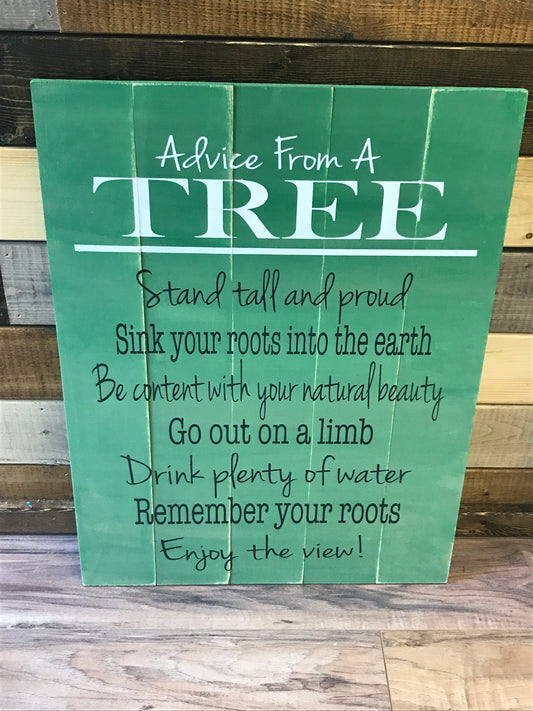 Advice From A
TREE
Stand tall and proud
Sink your roots into the earth
Be content with your natural beauty
Go out on a limb
Drink plenty of water
Remember your roots
Enjoy the view!